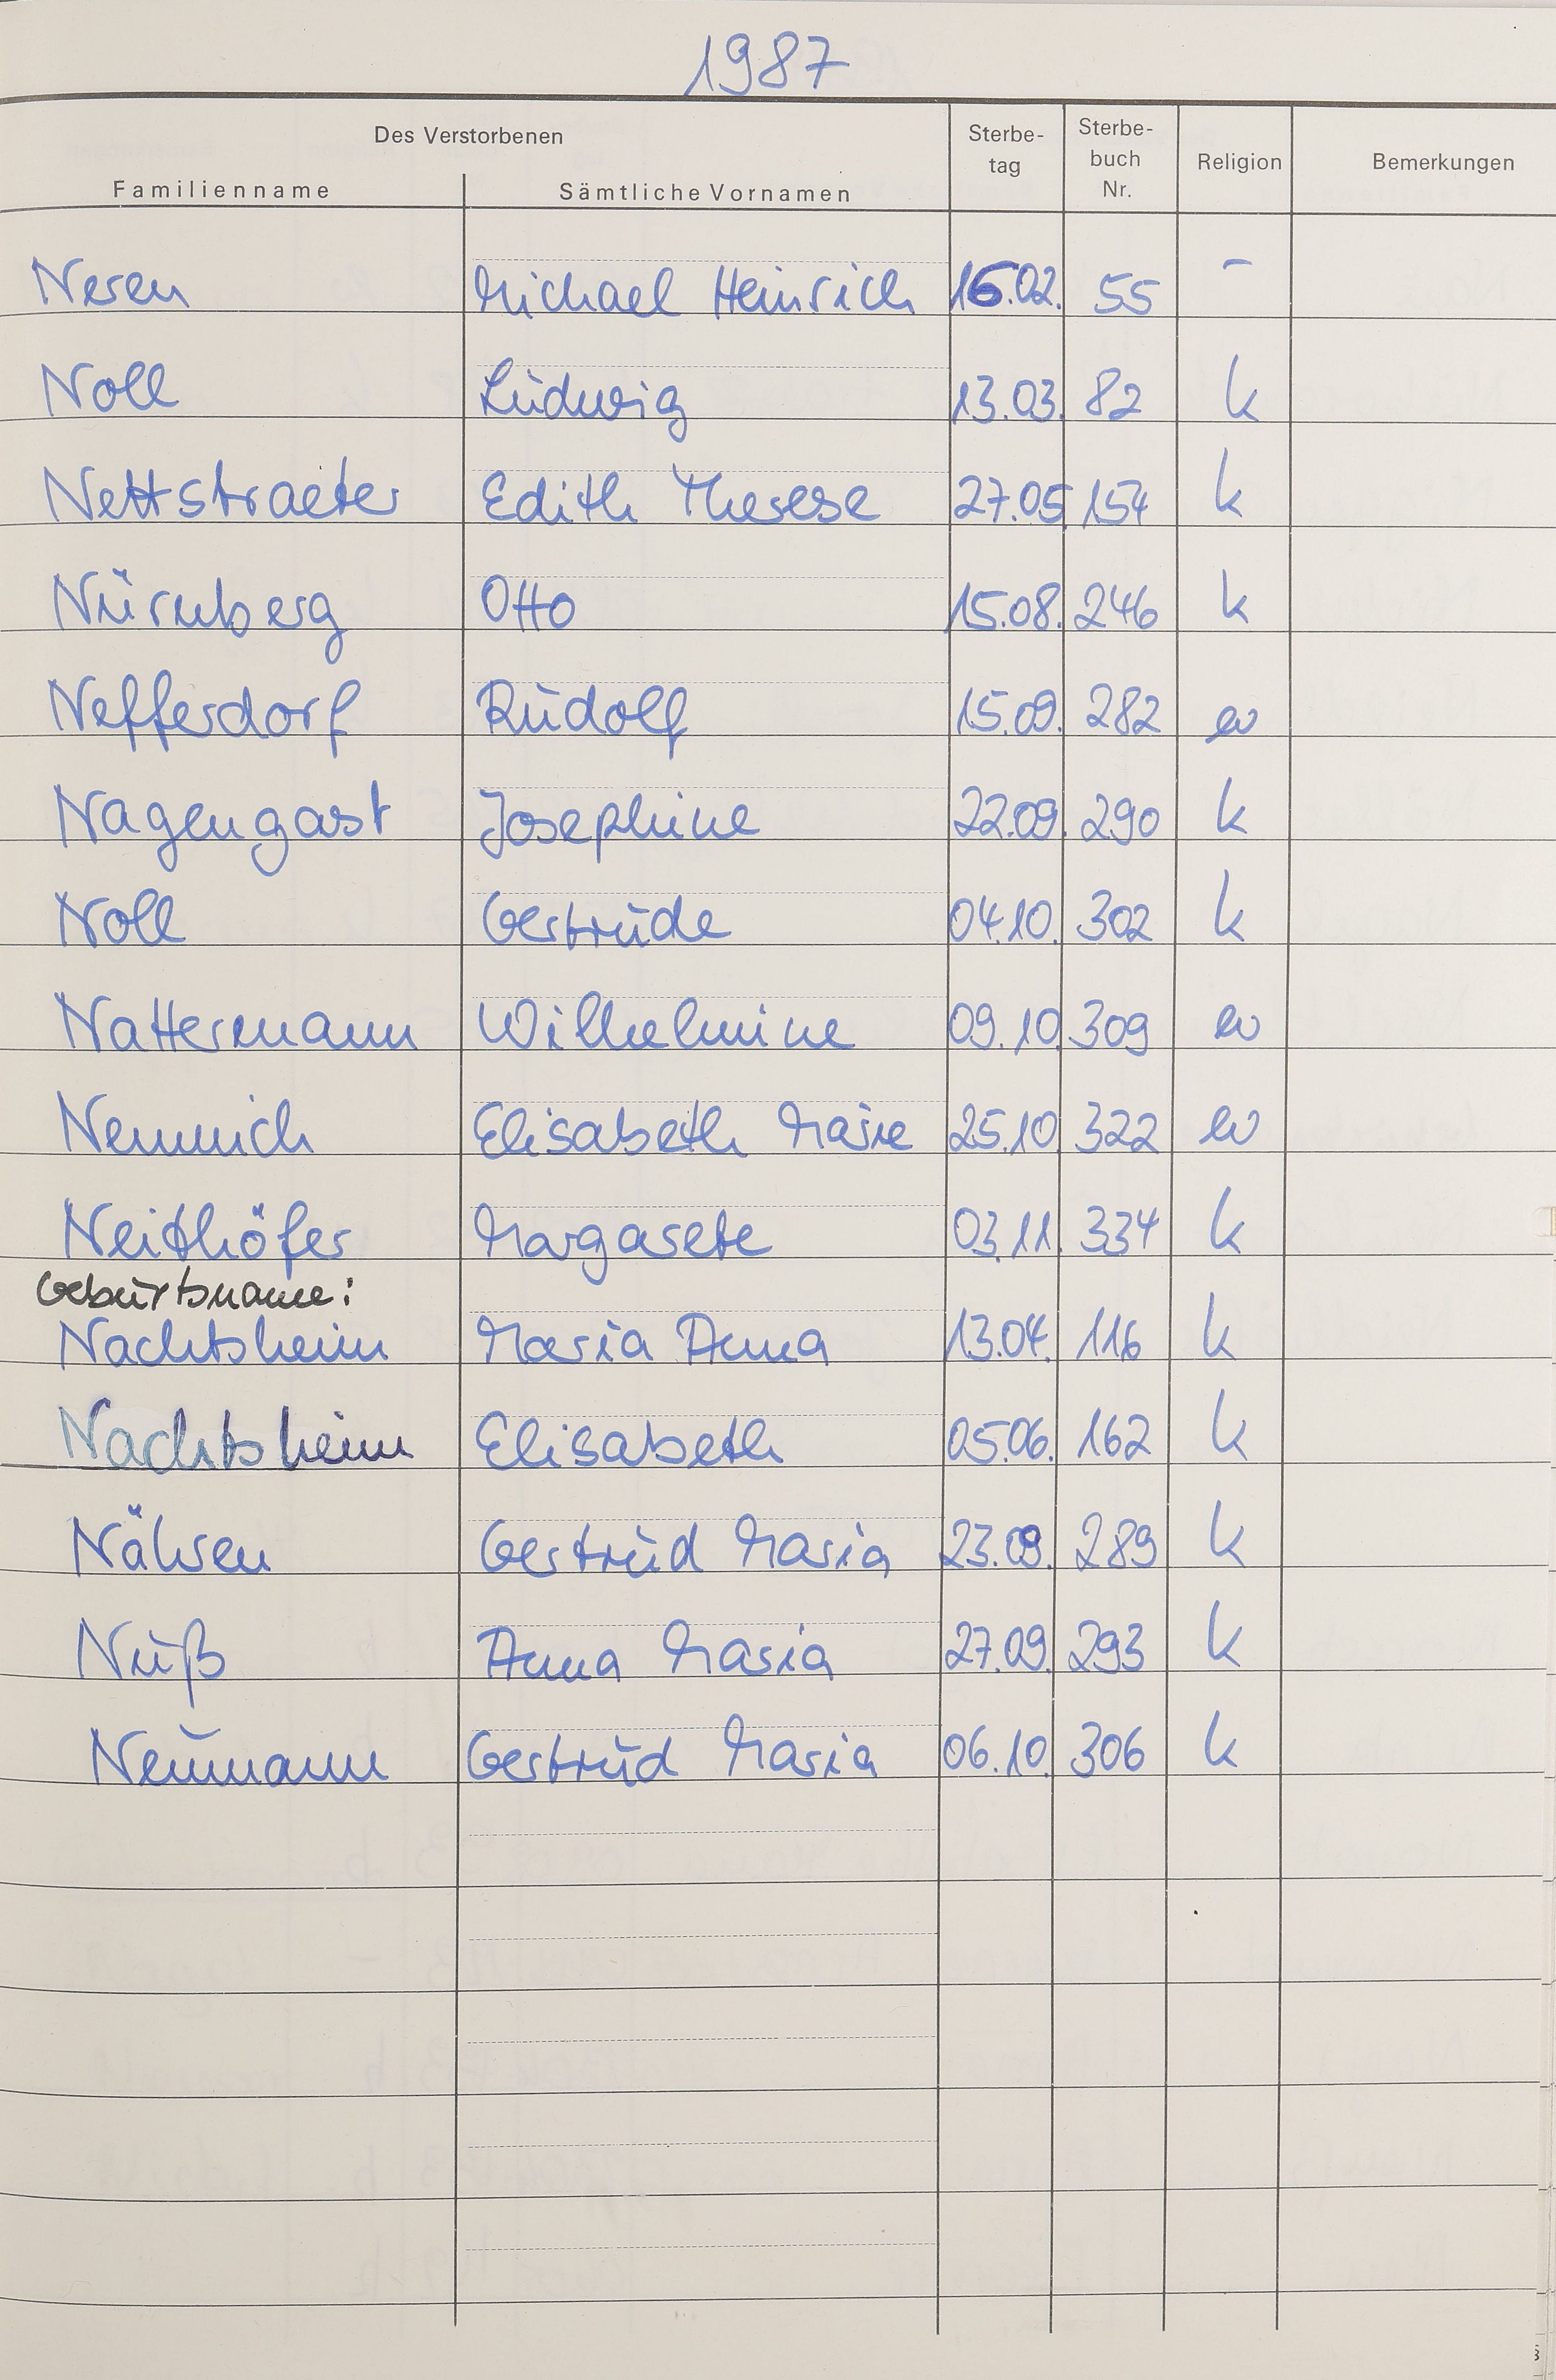 1987
Des Verstorbenen
Familienname Sämtliche Vornamen Sterbe-tag Sterbe-buch Nr. Religion Bemerkungen
Neren Michael Heinrich 16.02. 55 –
Noll Ludwig 13.03. 82 k
Nettstraeter Edith Therese 27.05 154 k
Nürnberg Otto 15.08. 246 k
Nefferdorf Rudolf 15.09. 282 ev
Nagengast Josephine 22.09. 290 k
Noll Gertrude 04.10. 302 k
Nattermann Wilhelmine 09.10 309 ev
Nemnich Elisabeth Marie 25.10 322 ev
Neithöfer Margarete 03.11. 334 k
Geburtsname:
Nachtsheim Maria Anna 13.04. 116 k
Nachtsheim Elisabeth 05.06. 162 k
Nähren Gertrud Maria 23.09. 289 k
Nuß Anna Maria 27.09. 293 k
Neumann Gertrud Maria 06.10. 306 k